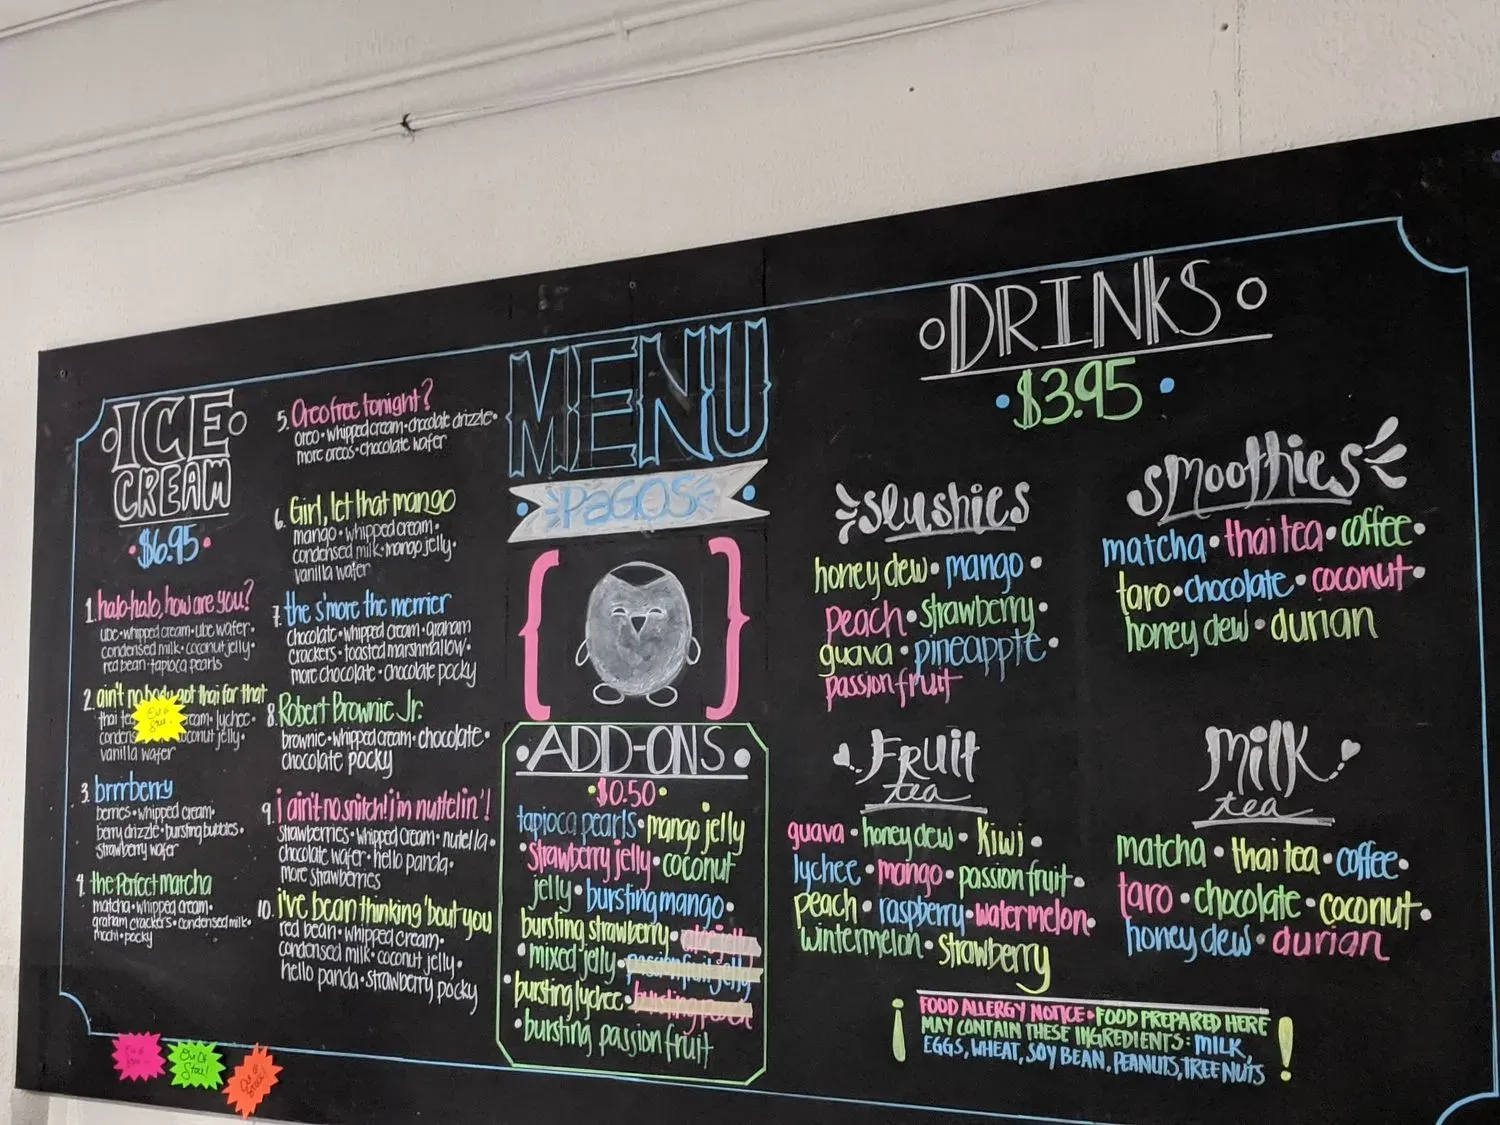 ICE
CREAM
$6.95
1. halo-halo, how are you?
ube • whipped cream • ube wafer •
condensed milk • coconut jelly •
red bean • tapioca pearls
2. ain't nobody got thai for that
thai tea cream • lychee •
coconut jelly •
vanilla wafer
3. brrrberry
berries • whipped cream •
berry drizzle • bursting bubbles •
strawberry wafer
4. the Perfect Matcha
matcha • whipped cream •
graham crackers • condensed milk •
mochi • pocky
5. Oreo free tonight?
oreo • whipped cream • chocolate drizzle •
more oreos • chocolate wafer
6. Girl, let that mango
mango • whipped cream •
condensed milk • mango jelly •
vanilla wafer
7. the s'more the merrier
chocolate • whipped cream • graham
crackers • toasted marshmallow •
more chocolate • chocolate pocky
8. Robert Brownie Jr.
brownie • whipped cream • chocolate •
chocolate pocky
9. i ain't no snitch! i'm nuttelin'!
strawberries • whipped cream • nutella •
chocolate wafer • hello panda •
more strawberries
10. i've bean thinking 'bout you
red bean • whipped cream •
condensed milk • coconut jelly •
hello panda • strawberry pocky
Out of Stock!
MENU
PAGOS
ADD-ONS
• $0.50 •
tapioca pearls • mango jelly
• strawberry jelly • coconut
jelly • bursting mango •
bursting strawberry •
• mixed jelly • passionfruit jelly
• bursting lychee • bursting peach
• bursting passion fruit
DRINKS
• $3.95 •
slushies
honey dew • mango •
peach • strawberry •
guava • pineapple •
passion fruit
smoothies
matcha • thai tea • coffee •
taro • chocolate • coconut •
honey dew • durian
Fruit
tea
guava • honey dew • kiwi •
lychee • mango • passion fruit •
peach • raspberry • watermelon •
wintermelon • strawberry
Milk
tea
matcha • thai tea • coffee •
taro • chocolate • coconut •
honey dew • durian
FOOD ALLERGY NOTICE • FOOD PREPARED HERE
MAY CONTAIN THESE INGREDIENTS: MILK,
EGGS, WHEAT, SOY BEAN, PEANUTS, TREE NUTS
Out Of
Stock!